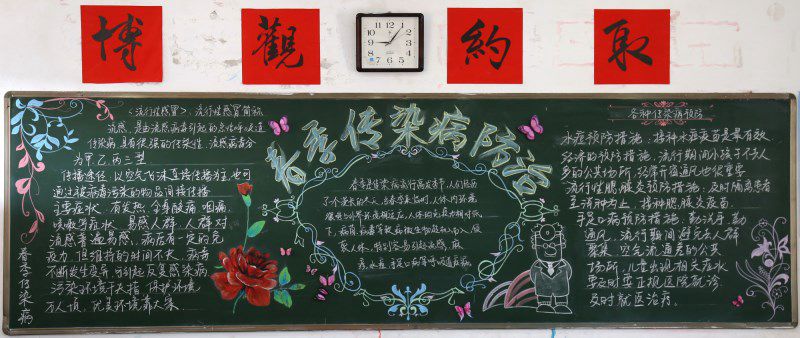 博 觀 約 取
春季传染病防治
春季传染病
《流行性感冒》:流行性感冒简称
流感,是由流感病毒引起的急性呼吸道
传染病,具有很强的传染性,流感病毒分
为甲乙丙三型
传播途径:以空气飞沫直接传播为主,也可
通过被病毒污染的物品间接传播
主要症状:有发热、全身酸痛、咽痛、
咳嗽等症状,易感人群:人群对
流感普遍易感,病后有一定的免
疫力,但维持的时间不久,病毒
不断发生变异,可引起反复感染病
污染环境千夫指,保护环境
万人颂,优美环境靠大家
春季是传染病流行高发季,人们经历
下,病菌、病毒等致病微生物
各种传染病预防
水痘预防措施:接种水痘疫苗是最有效、
经济的预防措施,流行期间小孩子不去人
多的公共场所,经常开窗通风也很重要
流行性腮腺炎预防措施:及时隔离患者
至消肿为止,接种腮腺炎疫苗
手足口病预防措施:勤洗手,勤
通风,流行期间避免去人群
聚集、空气流通差的公共
场所,儿童出现相关症状
要及时要正规医院就诊
及时就医治疗。